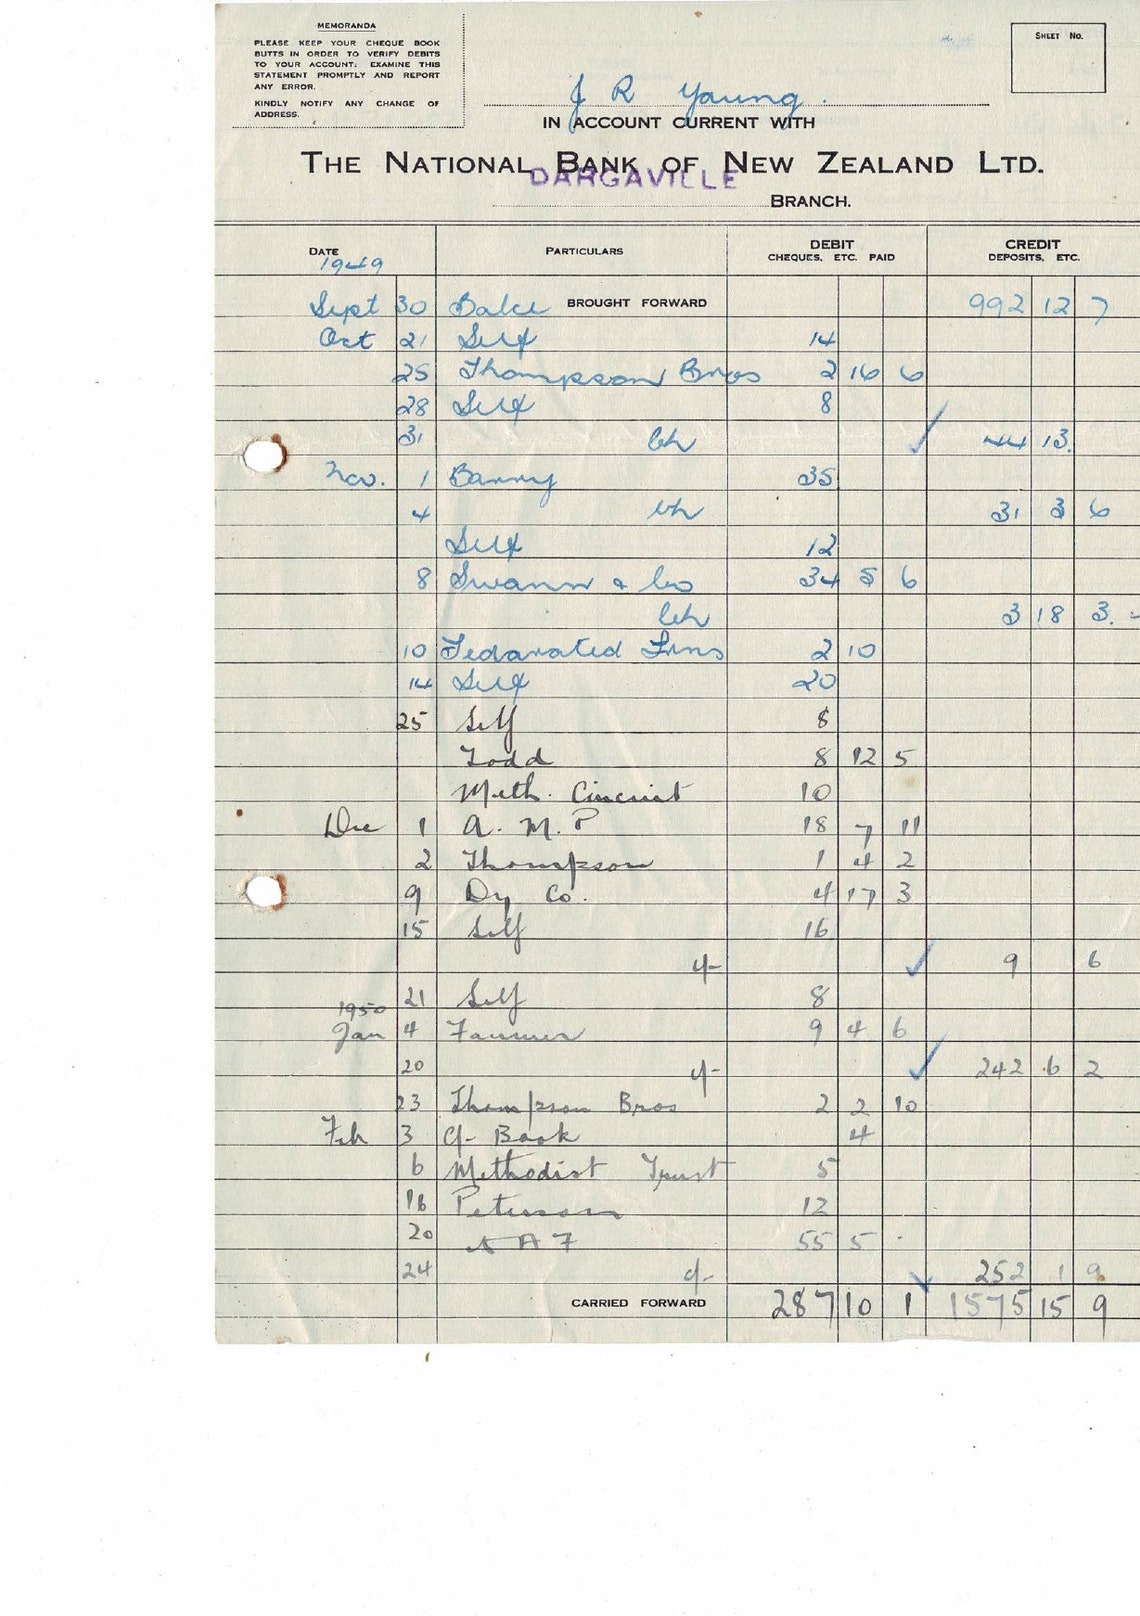 MEMORANDA
PLEASE KEEP YOUR CHEQUE BOOK
BUTTS IN ORDER TO VERIFY DEBITS
TO YOUR ACCOUNT: EXAMINE THIS
STATEMENT PROMPTLY AND REPORT
ANY ERROR.
KINDLY NOTIFY ANY CHANGE OF
ADDRESS.
SHEET No.
J R Young.
IN ACCOUNT CURRENT WITH
THE NATIONAL BANK OF NEW ZEALAND LTD.
DARGAVILLE
BRANCH.
DATE PARTICULARS DEBIT CREDIT
1949 CHEQUES, ETC. PAID DEPOSITS, ETC.
Sept 30 Balce BROUGHT FORWARD 992 12 7
Oct 21 Self 14
25 Thompson Bros 2 16 6
28 Self 8
31 Ch 44 13
Nov. 1 Barry 35
4 Ch 31 3 6
Self 12
8 Swann & Co 34 5 6
Ch 3 18 3.
10 Fedarated Frns 2 10
14 Self 20
25 Self 8
Todd 8 12 5
Meth. Circuit 10
Dec 1 A. M. P 18 7 11
2 Thompson 1 4 2
9 Dy Co. 4 17 3
15 Self 16
9 6
21 Self 8
1950
Jan 4 Farmer 9 4 6
20 242 6 2
23 Thompson Bros 2 2 10
Feb 3 Book 4
6 Methodist Trust 5
16 Peterson 12
20 N A F 55 5
24 252 1 9
CARRIED FORWARD 287 10 1 1575 15 9